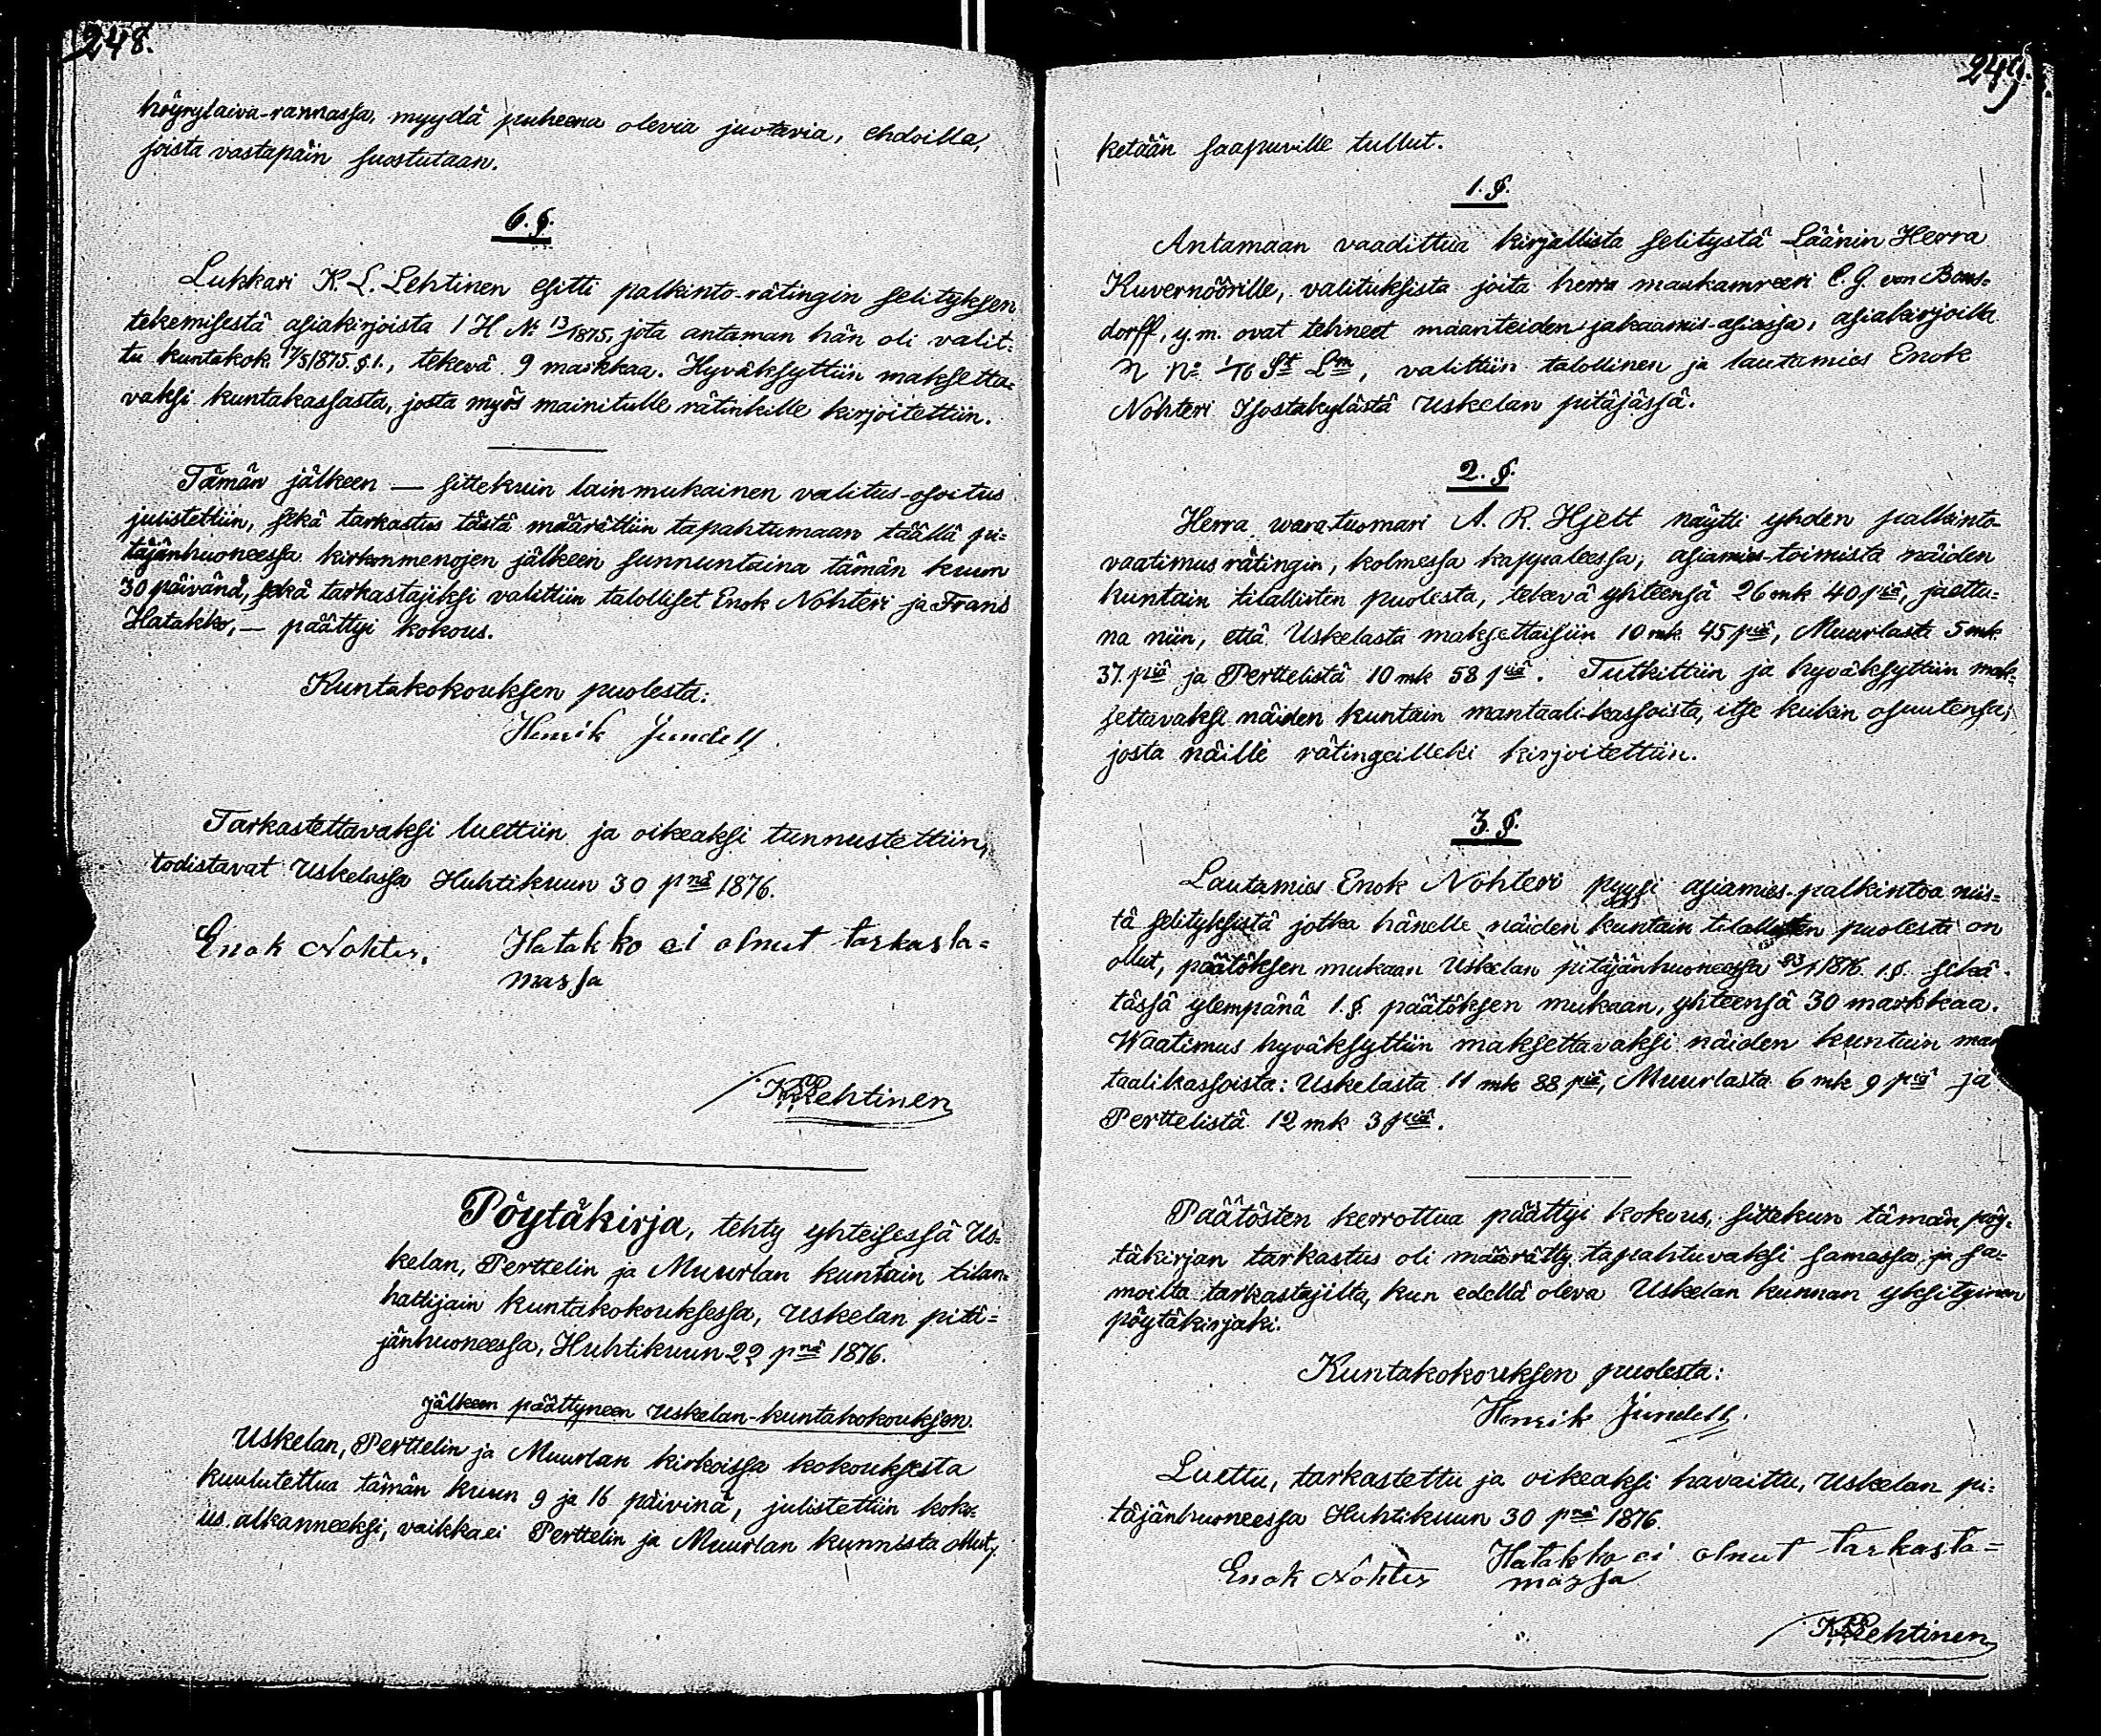 248.
höyrylaiva-rannassa, myydä puheena olevia juotavia, ehdoilla,
joista vastapäin suostutaan.
6. §.
Lukkari K. L. Lehtinen esitti palkinto-rätingin selityksen
tekemisestä asiakirjoista 1 H № 13/1875, jota antaman hän oli valit-
tu kuntakok. 17/5 1875. §. 1., tekevä 9 markkaa. Hyväksyttiin maksetta-
vaksi kuntakassasta, josta myös mainitulle rätinkille kirjoitettiin.
Tämän jälkeen — sittekuin lainmukainen valitus-osoitus
julistettiin, sekä tarkastus tästä määrättiin tapahtumaan täällä pi-
täjänhuoneessa kirkonmenojen jälkeen sunnuntaina tämän kuun
30 päivänä, sekä tarkastajiksi valittiin talolliset Enok Nohteri ja Frans
Hatakko, — päättyi kokous.
Kuntakokouksen puolesta:
Henrik Jundell.
Tarkastettavaksi luettiin ja oikeaksi tunnustettiin,
todistavat Uskelassa Huhtikuun 30 pnä 1876.
Enok Nohter. Hatakko ei olnut tarkasta-
massa
KLLehtinen
Pöytäkirja, tehty yhteisessä Us-
kelan, Perttelin ja Muurlan kuntain tilan-
haltijain kuntakokouksessa, Uskelan pitä-
jänhuoneessa, Huhtikuun 22 pnä 1876.
jälkeen päättyneen Uskelan-kuntakokouksen.
Uskelan, Perttelin ja Muurlan kirkoissa kokouksesta
kuulutettua tämän kuun 9 ja 16 päivinä, julistettiin koko-
us alkanneeksi, vaikka ei Perttelin ja Muurlan kunnista ollut,
249.
ketään saapuville tullut.
1. §.
Antamaan vaadittua kirjallista selitystä Läänin Herra
Kuvernöörille, valituksista joita herra maakamreeri C. G. von Bons-
dorff, y. m. ovat tehneet maanteiden jakaamis-asiassa, asiakirjoilla
N № 1/76 St Lm, valittiin talollinen ja lautamies Enok
Nohteri Isostakylästä Uskelan pitäjässä.
2. §.
Herra waratuomari A. R. Hjelt näytti yhden palkinto-
vaatimus rätingin, kolmessa kappaleessa, asiamies-toimista näiden
kuntain tilallisten puolesta, tekevä yhteensä 26 mk 40 piä, jaettu-
na niin, että Uskelasta maksettaisiin 10 mk 45 piä, Muurlasta 5 mk
37. piä ja Perttelistä 10 mk 58 piä. Tutkittiin ja hyväksyttiin mak-
settavaksi näiden kuntain mantaali-kassoista, itse kukin osuutensa,
josta näille rätingeilleki kirjoitettiin.
3. §.
Lautamies Enok Nohteri pyysi asiamies-palkintoa niis-
tä selityksistä jotka hänelle näiden kuntain tilallisten puolesta on
ollut, päätöksen mukaan Uskelan pitäjänhuoneessa 23/1 1876. 1. §. sekä
tässä ylempänä 1. §. päätöksen mukaan, yhteensä 30 markkaa.
Waatimus hyväksyttiin maksettavaksi näiden kuntain man
taalikassoista: Uskelasta 11 mk 88 piä, Muurlasta 6 mk 9 piä ja
Perttelistä 12 mk 3 piä.
Päätösten kerrottua päättyi kokous, sittekun tämän pöy-
täkirjan tarkastus oli määrätty tapahtuvaksi samassa ja sa-
moilta tarkastajilta, kun edellä oleva Uskelan kunnan yksityinen
pöytäkirjaki.
Kuntakokouksen puolesta:
Henrik Jundell.
Luettu, tarkastettu ja oikeaksi havaittu, Uskelan pi-
täjänhuoneessa Huhtikuun 30 pnä 1876.
Enok Nohter Hatakko ei olnut tarkasta-
massa
KLLehtinen